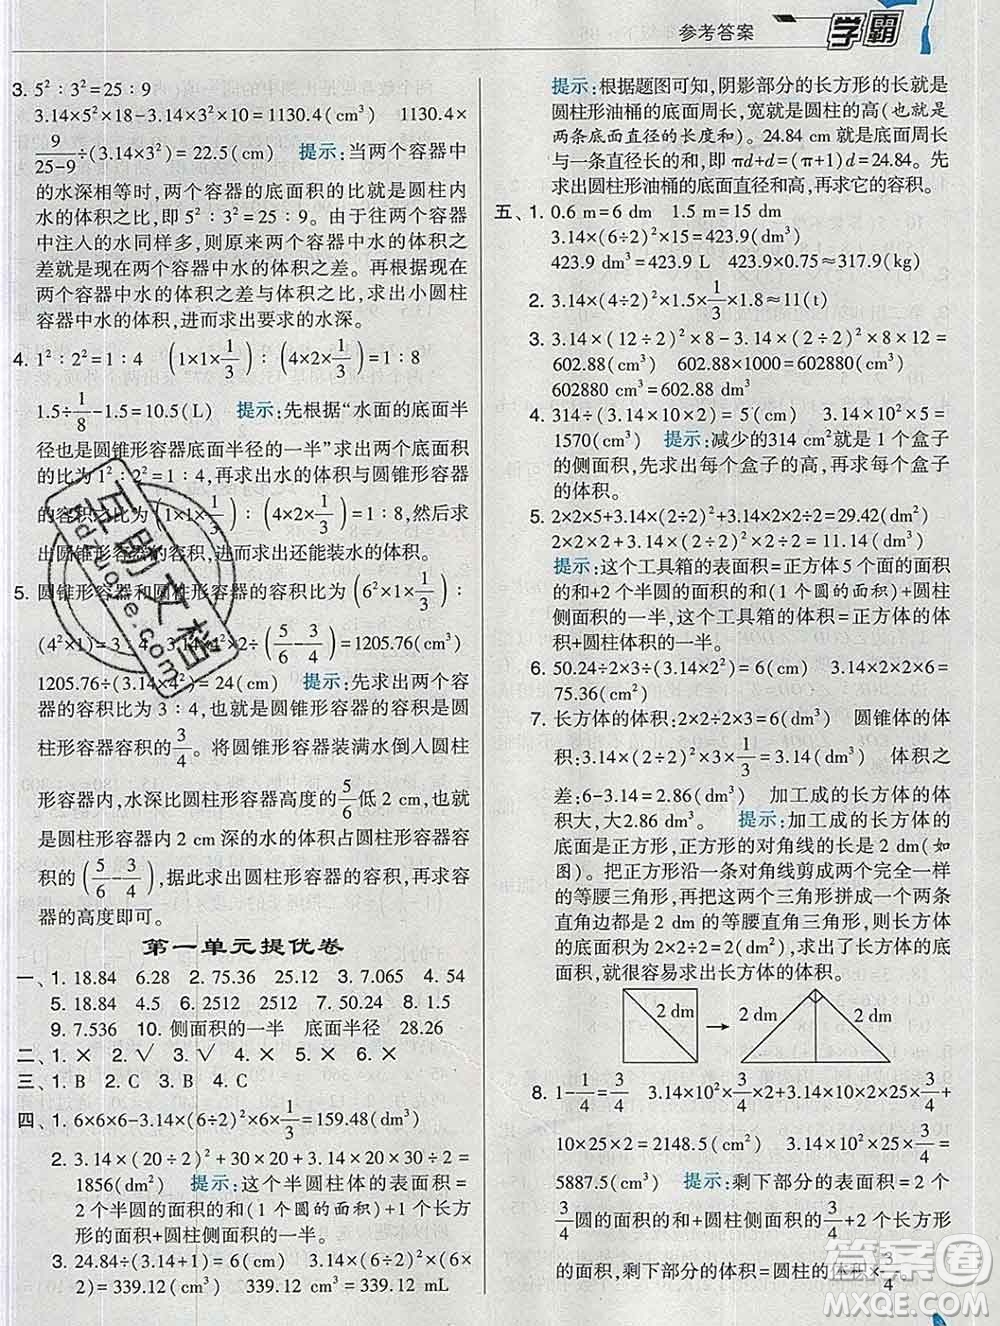 参考答案
学霸
3. 5²∶3²=25∶9
3.14×5²×18-3.14×3²×10=1130.4(cm³) 1130.4×
9/(25-9)÷(3.14×3²)=22.5(cm) 提示:当两个容器中
的水深相等时,两个容器的底面积的比就是圆柱内
水的体积之比,即 5²∶3²=25∶9。由于往两个容器
中注入的水同样多,则原来两个容器中水的体积之
差就是现在两个容器中水的体积之差。再根据现在
两个容器中水的体积之差与体积之比,求出小圆柱
容器中水的体积,进而求出要求的水深。
4. 1²∶2²=1∶4 (1×1×1/3)∶(4×2×1/3)=1∶8
1.5÷1/8-1.5=10.5(L) 提示:先根据“水面的底面半
径也是圆锥形容器底面半径的一半”求出两个底面积
的比为 1²∶2²=1∶4,再求出水的体积与圆锥形容器
的容积之比为(1×1×1/3)∶(4×2×1/3)=1∶8,然后求
出圆锥形容器的容积,进而求出还能装水的体积。
5. 圆锥形容器和圆柱形容器的容积比为(6²×1×1/3)∶
(4²×1)=3∶4 3.14×4²×2÷(5/6-3/4)=1205.76(cm³)
1205.76÷(3.14×4²)=24(cm) 提示:先求出两个容
器的容积比为 3∶4,可知圆锥形容器的容积是圆
柱形容器容积的3/4。将圆锥形容器装满水倒入圆柱
形容器内,水深比圆柱形容器高度的5/6低 2 cm,也
就是圆柱形容器内 2 cm 深的水的体积占圆柱形容器容
积的(5/6-3/4),据此求出圆柱形容器的容积,再求容
器的高度即可。
第一单元提优卷
一、1. 18.84 6.28 2. 75.36 25.12 3. 7.065 4. 54
5. 18.84 4.5 6. 2512 2512 7. 50.24 8. 1.5
9. 7.536 10. 侧面积的一半 底面半径 28.26
二、1. × 2. √ 3. × 4. × 5. √ 6. ×
三、1. B 2. C 3. B 4. C
四、1. 6×6×6-3.14×(6÷2)²×6×1/3=159.48(dm³)
2. 3.14×(20÷2)²+30×20+3.14×20×30÷2=
1856(dm²) 提示:这个半圆柱体的表面积=
2 个半圆的面积的和(1 个圆的面积)+1 个长方
形的面积+圆柱侧面积的一半。
3. 24.84÷(3.14+1)=6(cm) 3.14×(6÷2)²×(6×
2)=339.12(cm³) 339.12 cm³=339.12 mL
提示:根据题图可知,阴影部分的长方形的长就是
圆柱形油桶的底面周长,宽就是圆柱的高(也就是
两条底面直径的长度和)。24.84 cm 就是底面周长
与一条直径长的和,即 πd+d=(π+1)d=24.84。先
求出圆柱形油桶的底面直径和高,再求它的容积。
五、1. 0.6 m=6 dm 1.5 m=15 dm
3.14×(6÷2)²×15=423.9(dm³)
423.9 dm³=423.9 L 423.9×0.75≈317.9(kg)
2. 3.14×(4÷2)²×1.5×1/3×1.8≈11(t)
3. 3.14×(12÷2)²×8-3.14×(2÷2)²×8×12=
602.88(cm³) 602.88×1000=602880(cm³)
602880 cm³=602.88 dm³
4. 314÷(3.14×10×2)=5(cm) 3.14×10²×5=
1570(cm³) 提示:减少的314 cm²就是 1 个盒子
的侧面积,先求出每个盒子的高,再求每个盒子
的体积。
5. 2×2×5+3.14×(2÷2)²+3.14×2×2÷2=29.42(dm²)
2×2×2+3.14×(2÷2)²×2÷2=11.14(dm³)
提示:这个工具箱的表面积=正方体 5 个面的面积
的和+2 个半圆的面积的和(1 个圆的面积)+圆柱
侧面积的一半,这个工具箱的体积=正方体的体
积+圆柱体积的一半。
6. 50.24÷2×3÷(3.14×2²)=6(cm) 3.14×2²×6=
75.36(cm³)
7. 长方体的体积:2×2÷2×3=6(dm³) 圆锥体的体
积:3.14×(2÷2)²×3×1/3=3.14(dm³) 体积之
差:6-3.14=2.86(dm³) 加工成的长方体的体
积大,大2.86 dm³ 提示:加工成的长方体的
底面是正方形,正方形的对角线的长是2 dm(如
图)。把正方形沿一条对角线剪成两个完全一样
的等腰三角形,再把这两个三角形拼成一个两条
直角边都是 2 dm 的等腰直角三角形,所以长方体
的底面积为2×2÷2=2(dm²),求出了长方体的底
面积,就很容易求出长方体的体积。
2 dm
2 dm
2 dm
8. 1-1/4=3/4 3.14×10²×3/4×2+3.14×10×2×25×3/4+
10×25×2=2148.5(cm²) 3.14×10²×25×3/4=
5887.5(cm³) 提示:剩下部分的表面积=2 个
3/4圆的面积的和+圆柱侧面积的3/4+2 个长方形
的面积,剩下部分的体积=圆柱的体积×3/4。
百助文档
bdzuoye.com
答案圈
MXQE.COM